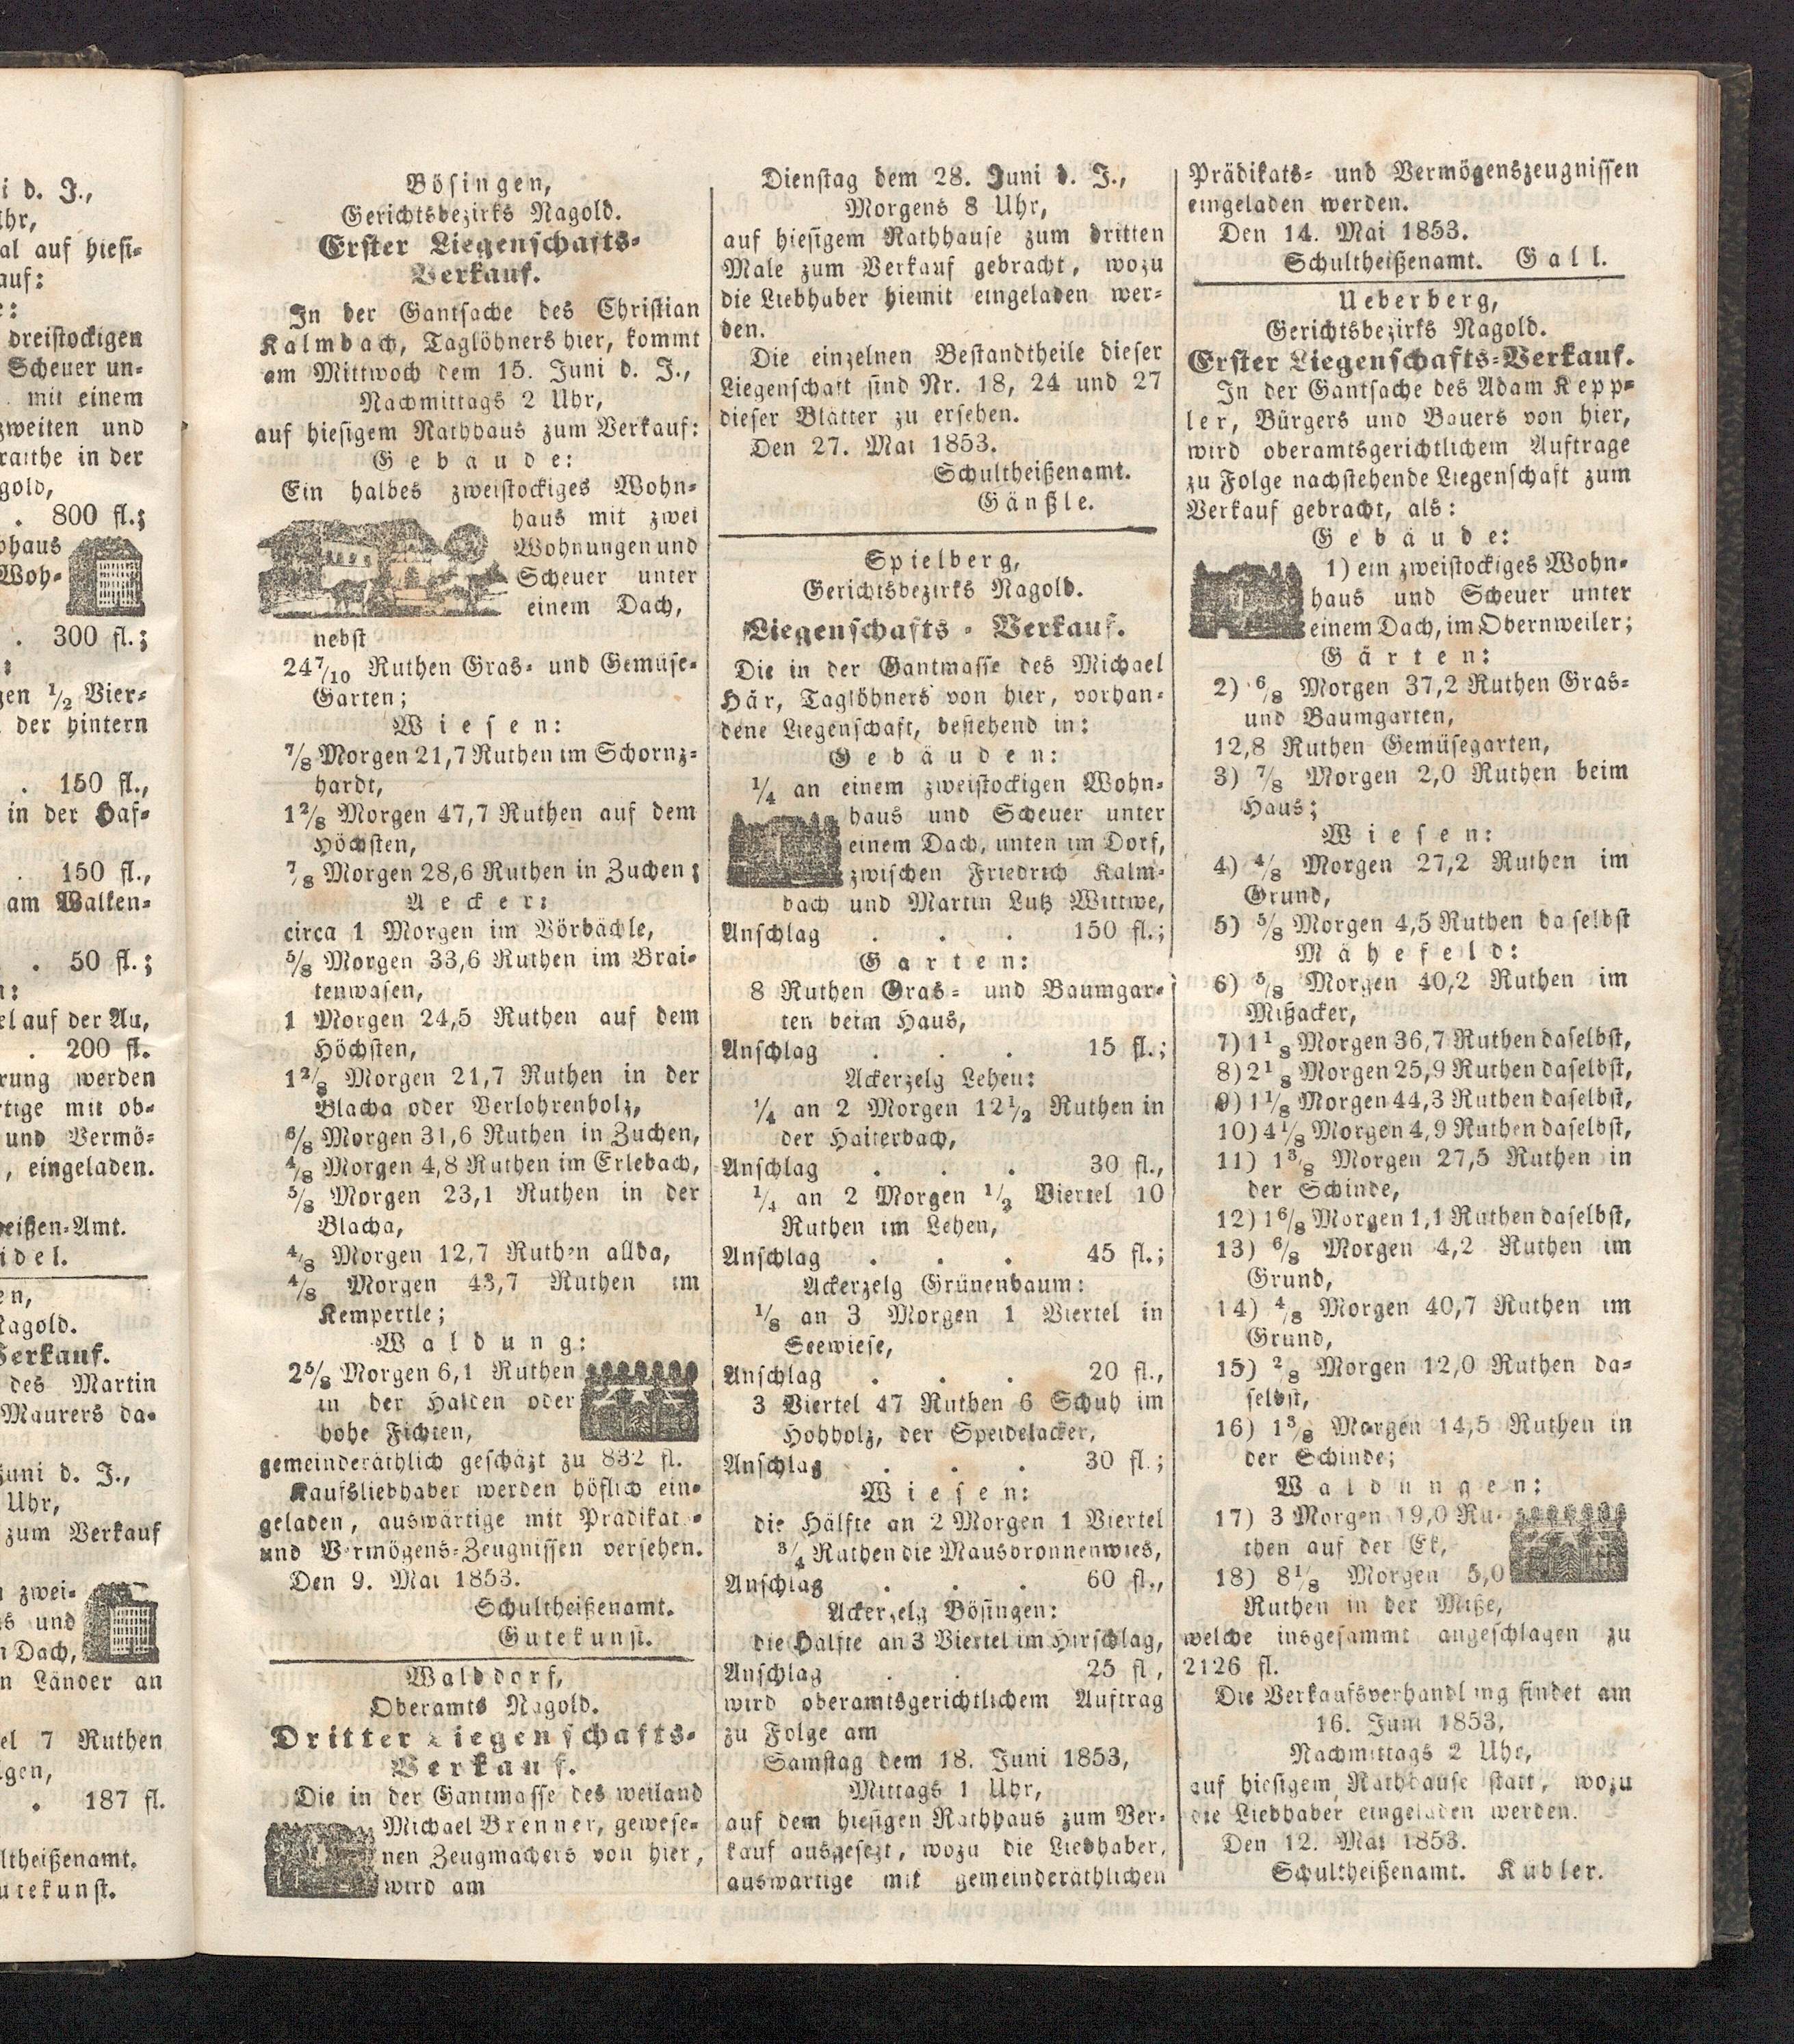 i d. J.,
Uhr,
al auf hiesi-
auf:
dreistockigen
Scheuer un-
mit einem
zweiten und
raithe in der
gold,
. 800 fl.;
ohaus
Woh-
. 300 fl.;
gen 1/2 Vier-
der hintern
. 150 fl.,
in der Haf-
. 150 fl.,
am Walken-
. 50 fl.;
n:
el auf der Au,
. 200 fl.
rung werden
rtige mit ob-
und Vermö-
, eingeladen.
heißen-Amt.
idel.
en,
Nagold.
Verkauf.
des Martin
Maurers da-
Juni d. J.,
Uhr,
zum Verkauf
n zwei-
s und
n Dach,
n Länder an
el 7 Ruthen
gen,
. 187 fl.
ltheißenamt.
utekunst.
Bösingen,
Gerichtsbezirks Nagold.
Erster Liegenschafts-
Verkauf.
In der Gantsache des Christian
Kalmbach, Taglöhners hier, kommt
am Mittwoch dem 15. Juni d. J.,
Nachmittags 2 Uhr,
auf hiesigem Rathhaus zum Verkauf:
Gebäude:
Ein halbes zweistockiges Wohn-
haus mit zwei
Wohnungen und
Scheuer unter
einem Dach,
nebst
24 7/10 Ruthen Gras- und Gemüse-
Garten;
Wiesen:
7/8 Morgen 21,7 Ruthen im Schornz-
hardt,
1 2/8 Morgen 47,7 Ruthen auf dem
Höchsten,
7/8 Morgen 28,6 Ruthen in Zuchen;
Aecker:
circa 1 Morgen im Vörbächle,
5/8 Morgen 33,6 Ruthen im Brai-
tenwasen,
1 Morgen 24,5 Ruthen auf dem
Höchsten,
1 2/8 Morgen 21,7 Ruthen in der
Blacha oder Verlohrenholz,
6/8 Morgen 31,6 Ruthen in Zuchen,
4/8 Morgen 4,8 Ruthen im Erlebach,
5/8 Morgen 23,1 Ruthen in der
Blacha,
4/8 Morgen 12,7 Ruthen allda,
4/8 Morgen 43,7 Ruthen im
Kempertle;
Waldung:
2 5/8 Morgen 6,1 Ruthen
in der Halden oder
hohe Fichten,
gemeinderäthlich geschäzt zu 832 fl.
Kaufsliebhaber werden höflich ein-
geladen, auswärtige mit Prädikat-
und Vermögens-Zeugnissen versehen.
Den 9. Mai 1853.
Schultheißenamt.
Gutekunst.
Walddorf,
Oberamts Nagold.
Dritter Liegenschafts-
Verkauf.
Die in der Gantmasse des weiland
Michael Brenner, gewese-
nen Zeugmachers von hier,
wird am
Dienstag dem 28. Juni d. J.,
Morgens 8 Uhr,
auf hiesigem Rathhause zum dritten
Male zum Verkauf gebracht, wozu
die Liebhaber hiemit eingeladen wer-
den.
Die einzelnen Bestandtheile dieser
Liegenschaft sind Nr. 18, 24 und 27
dieser Blätter zu ersehen.
Den 27. Mai 1853.
Schultheißenamt.
Gänßle.
Spielberg,
Gerichtsbezirks Nagold.
Liegenschafts-Verkauf.
Die in der Gantmasse des Michael
Här, Taglöhners von hier, vorhan-
dene Liegenschaft, bestehend in:
Gebäuden:
1/4 an einem zweistockigen Wohn-
haus und Scheuer unter
einem Dach, unten im Dorf,
zwischen Friedrich Kalm-
bach und Martin Lutz Wittwe,
Anschlag . . . 150 fl.;
Garten:
8 Ruthen Gras- und Baumgar-
ten beim Haus,
Anschlag . . . 15 fl.;
Ackerzelg Lehen:
1/4 an 2 Morgen 12 1/2 Ruthen in
der Haiterbach,
Anschlag . . . 30 fl.,
1/4 an 2 Morgen 1/2 Viertel 10
Ruthen im Lehen,
Anschlag . . . 45 fl.;
Ackerzelg Grünenbaum:
1/8 an 3 Morgen 1 Viertel in
Seewiese,
Anschlag . . . 20 fl.,
3 Viertel 47 Ruthen 6 Schuh im
Hohholz, der Speidelacker,
Anschlag . . . 30 fl.;
Wiesen:
die Hälfte an 2 Morgen 1 Viertel
3/4 Ruthen die Mausbronnenwies,
Anschlag . . . 60 fl.,
Ackerzelg Bösingen:
die Hälfte an 3 Viertel im Hirschlag,
Anschlag . . 25 fl.,
wird oberamtsgerichtlichem Auftrag
zu Folge am
Samstag dem 18. Juni 1853,
Mittags 1 Uhr,
auf dem hiesigen Rathhaus zum Ver-
kauf ausgesezt, wozu die Liebhaber,
auswärtige mit gemeinderäthlichen
Prädikats- und Vermögenszeugnissen
eingeladen werden.
Den 14. Mai 1853.
Schultheißenamt. Gall.
Ueberberg,
Gerichtsbezirks Nagold.
Erster Liegenschafts-Verkauf.
In der Gantsache des Adam Kepp-
ler, Bürgers und Bauers von hier,
wird oberamtsgerichtlichem Auftrage
zu Folge nachstehende Liegenschaft zum
Verkauf gebracht, als:
Gebäude:
1) ein zweistockiges Wohn-
haus und Scheuer unter
einem Dach, im Obernweiler;
Gärten:
2) 6/8 Morgen 37,2 Ruthen Gras-
und Baumgarten,
12,8 Ruthen Gemüsegarten,
3) 7/8 Morgen 2,0 Ruthen beim
Haus;
Wiesen:
4) 4/8 Morgen 27,2 Ruthen im
Grund,
5) 5/8 Morgen 4,5 Ruthen daselbst
Mähefeld:
6) 5/8 Morgen 40,2 Ruthen im
Mißacker,
7) 1 1/8 Morgen 36,7 Ruthen daselbst,
8) 2 1/8 Morgen 25,9 Ruthen daselbst,
9) 1 1/8 Morgen 44,3 Ruthen daselbst,
10) 4 1/8 Morgen 4,9 Ruthen daselbst,
11) 1 3/8 Morgen 27,5 Ruthen in
der Schinde,
12) 1 6/8 Morgen 1,1 Ruthen daselbst,
13) 6/8 Morgen 4,2 Ruthen im
Grund,
14) 4/8 Morgen 40,7 Ruthen im
Grund,
15) 2/8 Morgen 12,0 Ruthen da-
selbst,
16) 1 3/8 Morgen 14,5 Ruthen in
der Schinde;
Waldungen:
17) 3 Morgen 19,0 Ru-
then auf der Ek,
18) 8 1/8 Morgen 5,0
Ruthen in der Miße,
welche insgesammt angeschlagen zu
2126 fl.
Die Verkaufsverhandlung findet am
16. Juni 1853,
Nachmittags 2 Uhr,
auf hiesigem Rathhause statt, wozu
die Liebhaber eingeladen werden.
Den 12. Mai 1853.
Schultheißenamt. Kübler.